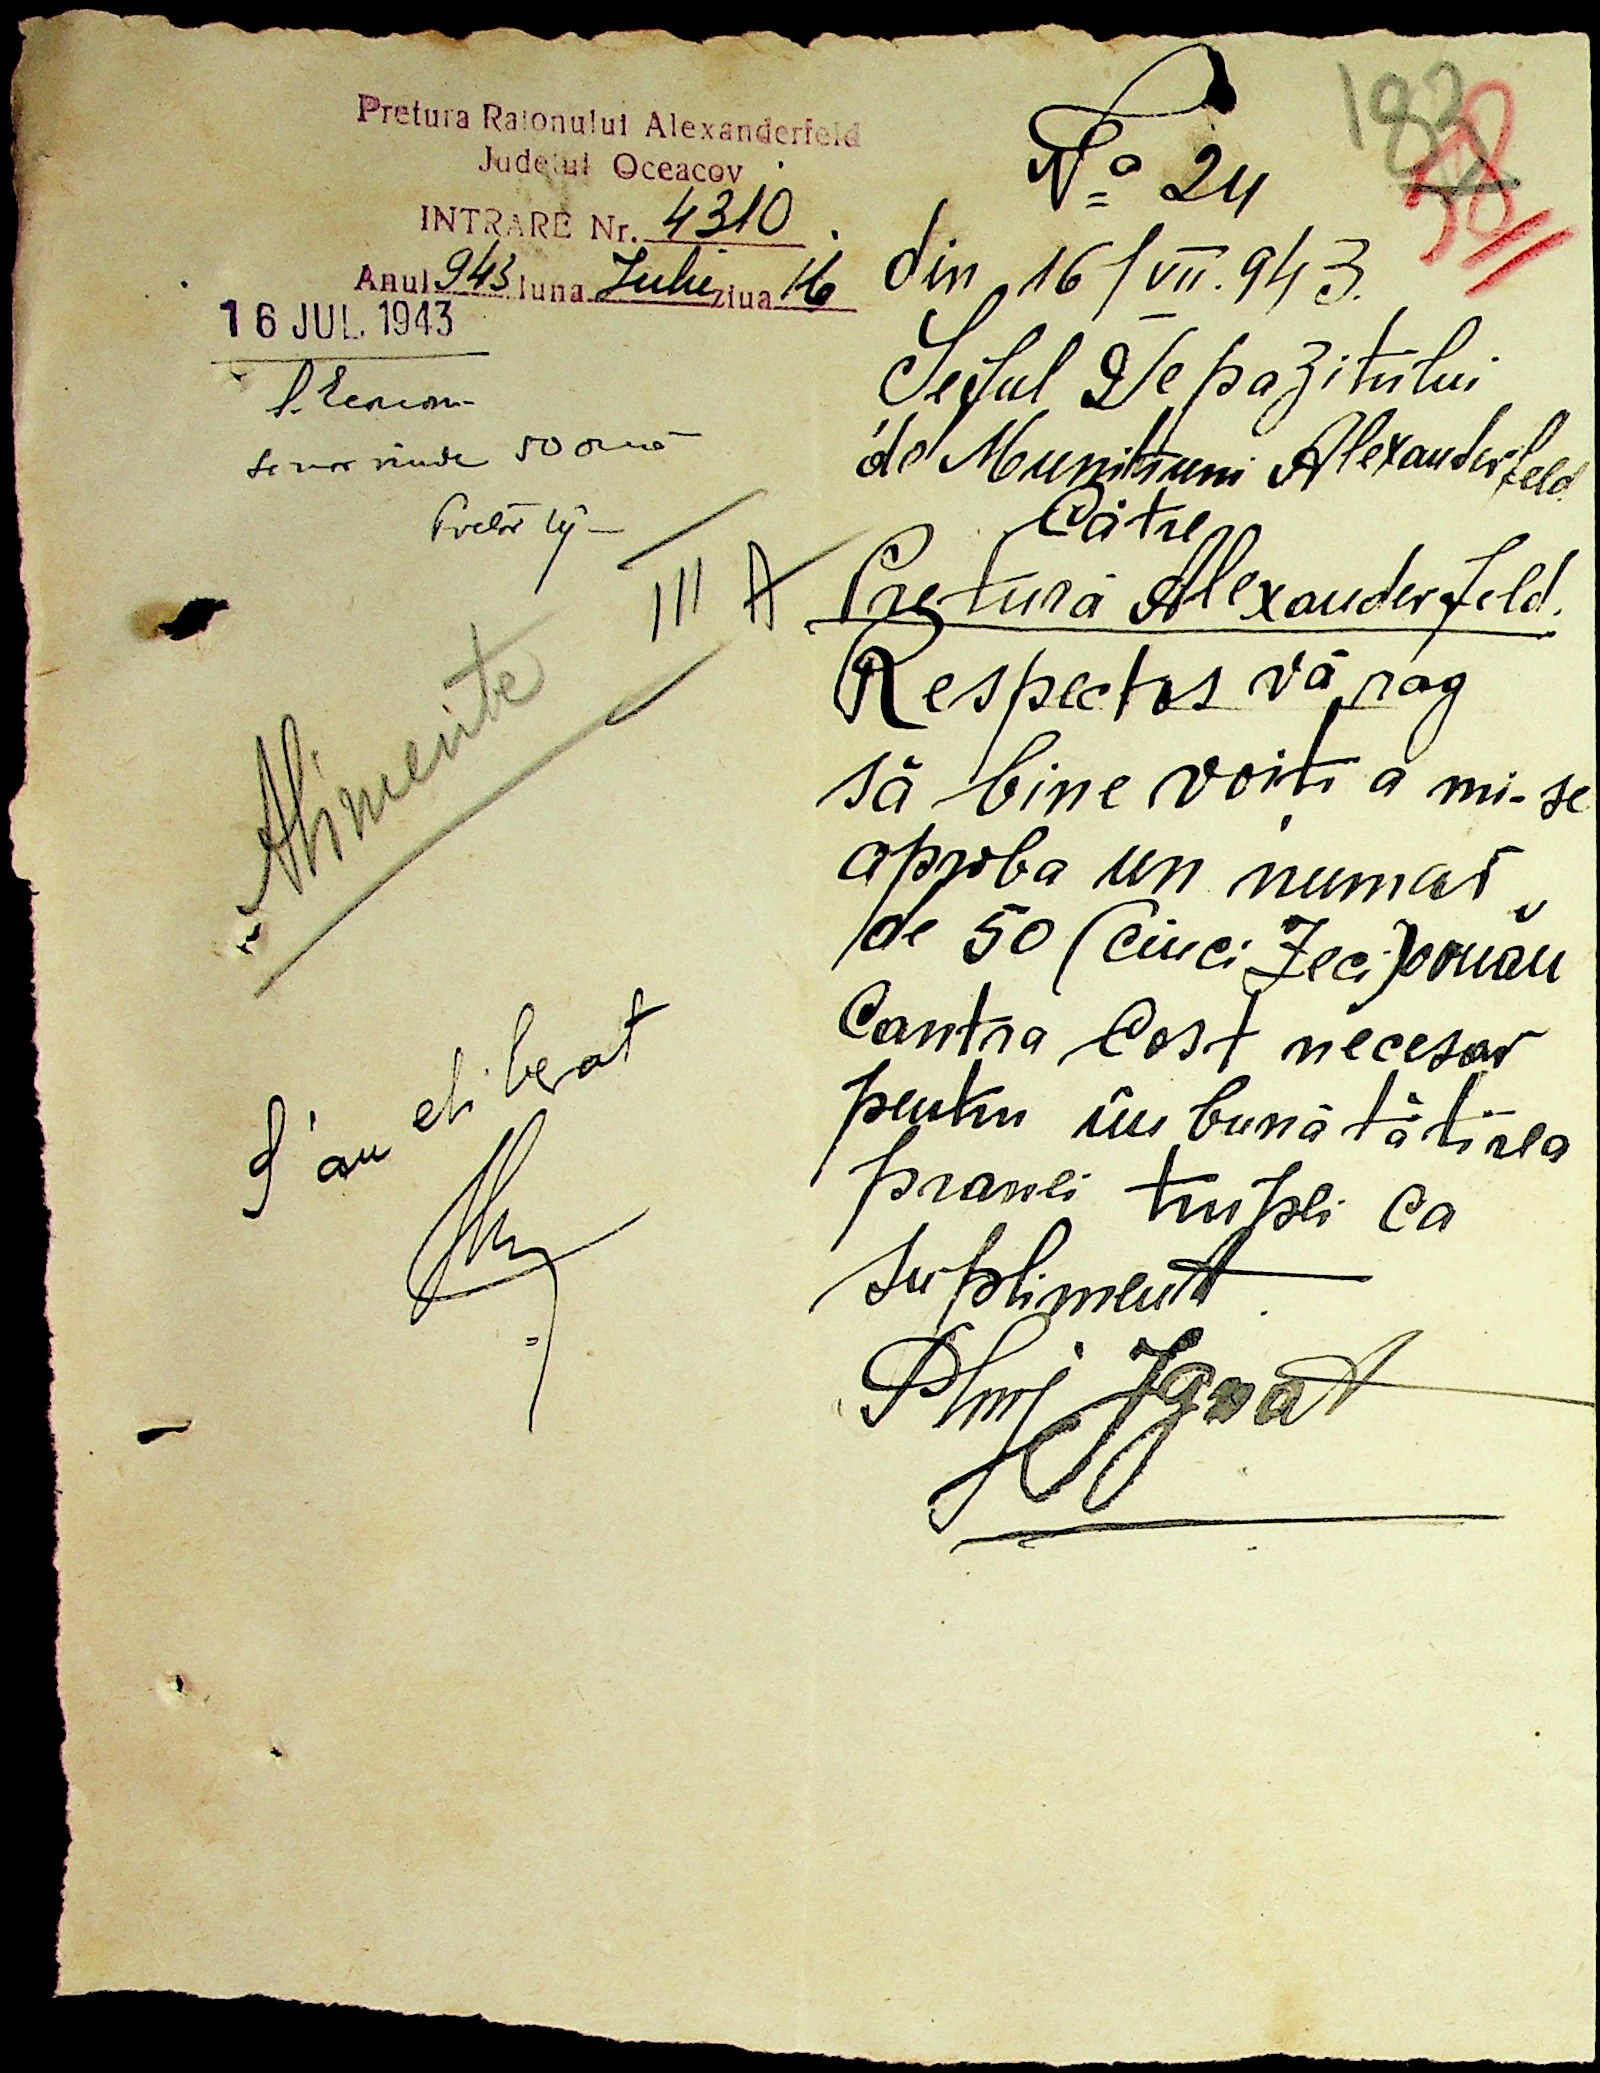 Pretura Raionului Alexanderfeld
Judeţul Oceacov
INTRARE Nr. 4310
Anul 943 luna Iulie ziua 16
16 JUL. 1943
S. Econom
se vor vinde 50 ouă
Pretor
III A
Alimente
S'au eliberat
182
38
No 24
din 16/VII.943.
Șeful Depazitului
de Munitiuni Alexanderfeld
Către
Pretura Alexanderfeld.
Respectos vă rog
să bine voiți a mi-se
aproba un numar
de 50 (Cinci Zeci) ouău
Contra Cost necesar
pentru îmbunătățirea
pranei trupli ca
supliment
Plmj Ignat